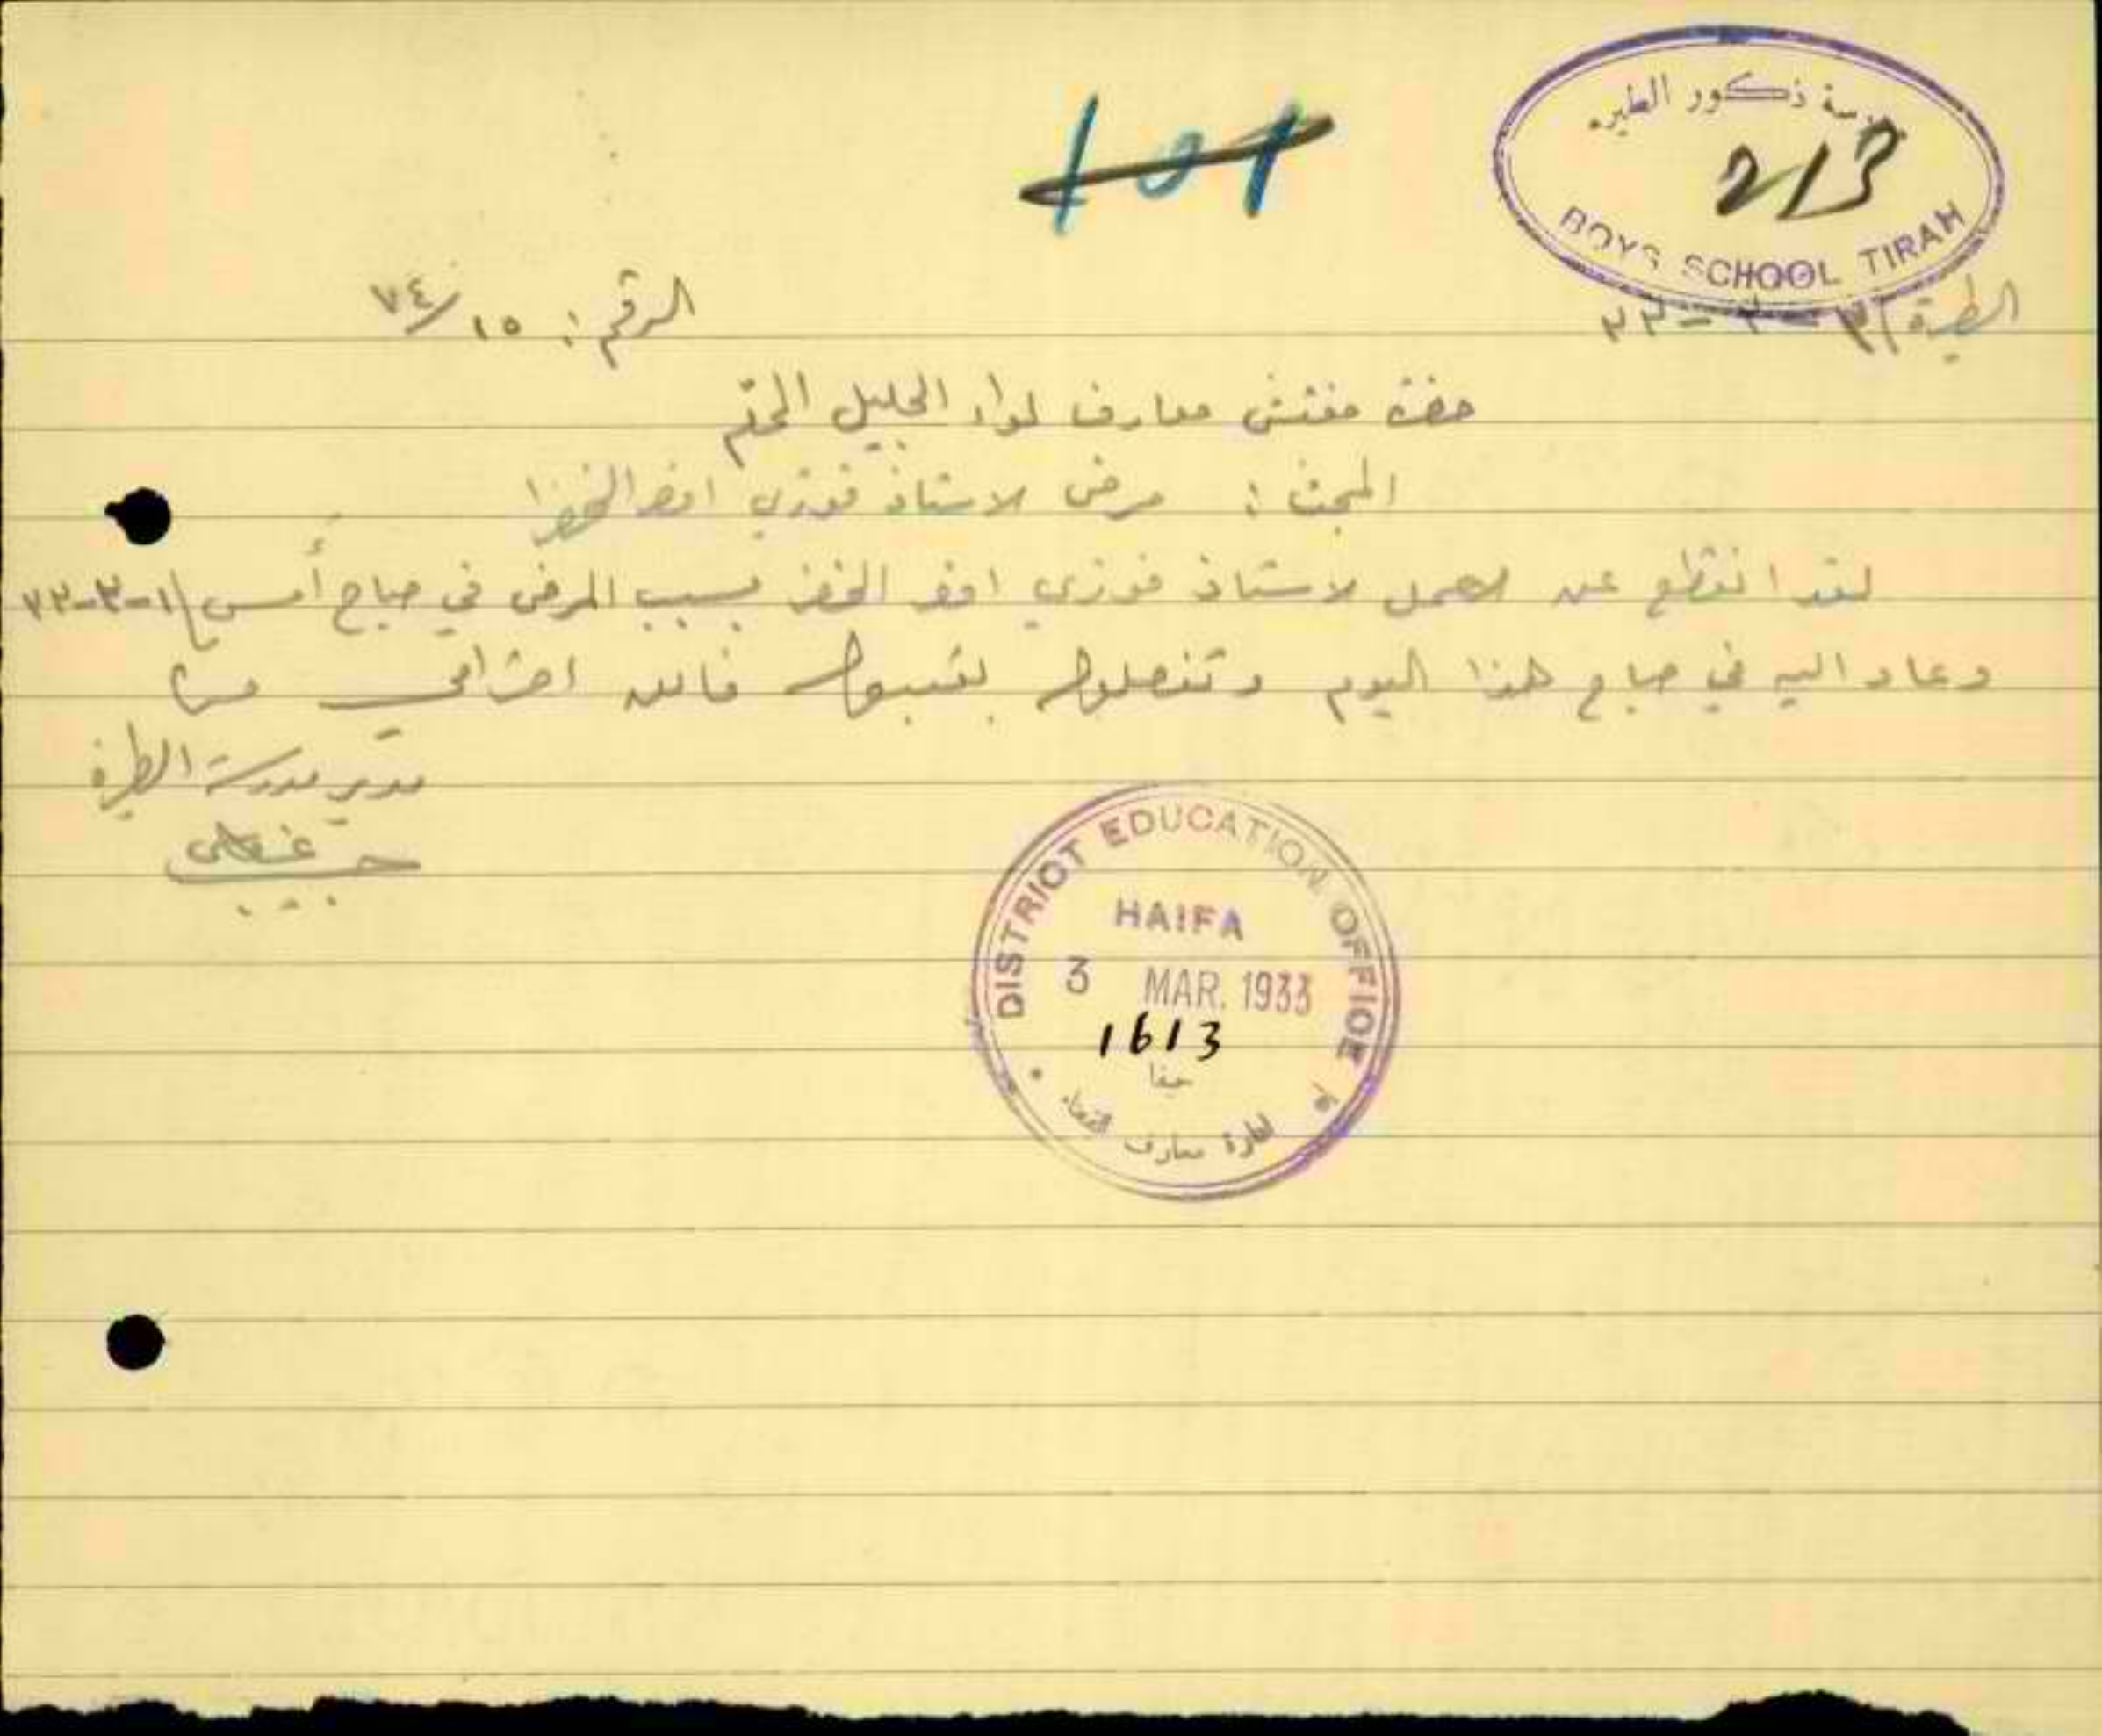 مدرسة ذكور الطيره
213
BOYS SCHOOL TIRAH
101
الطيرة ٢-٣-٣٣
الرقم : ١٥/٧٤
حضرة مفتش معارف لواء الجليل المحترم
المبحث : مرض الاستاذ فوزي افند الخضرا
لقد انقطع عن العمل الاستاذ فوزي افند الخضرا بسبب المرض في صباح أمس ١-٣-٣٣
وعاد اليه في صباح هذا اليوم وتفضلوا بقبول فائق احترامي
مدير مدرسة الطيرة
حبيب
DISTRICT EDUCATION OFFICE
HAIFA
3 MAR. 1933
1613
حيفا
ادارة معارف القضاء